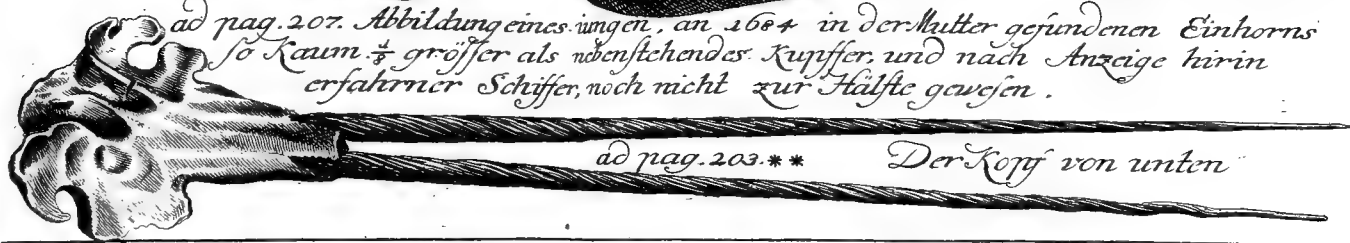 ad pag. 207. Abbildung eines iungen, an 1684 in der Mutter gefundenen Einhorns
so Kaum. ⅘ grösser als nebenstehendes Kupffer, und nach Anzeige hirin
erfahrner Schiffer, noch nicht zur Hälfte gewesen.
ad pag. 203.** Der Kopf von unten